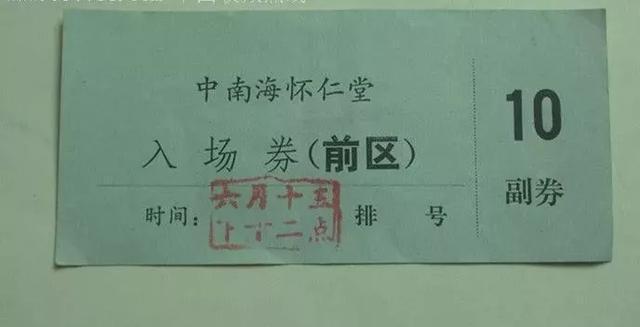 中南海怀仁堂
入场券(前区)
时间: 排 号
六月十五
下午二点
10
副券